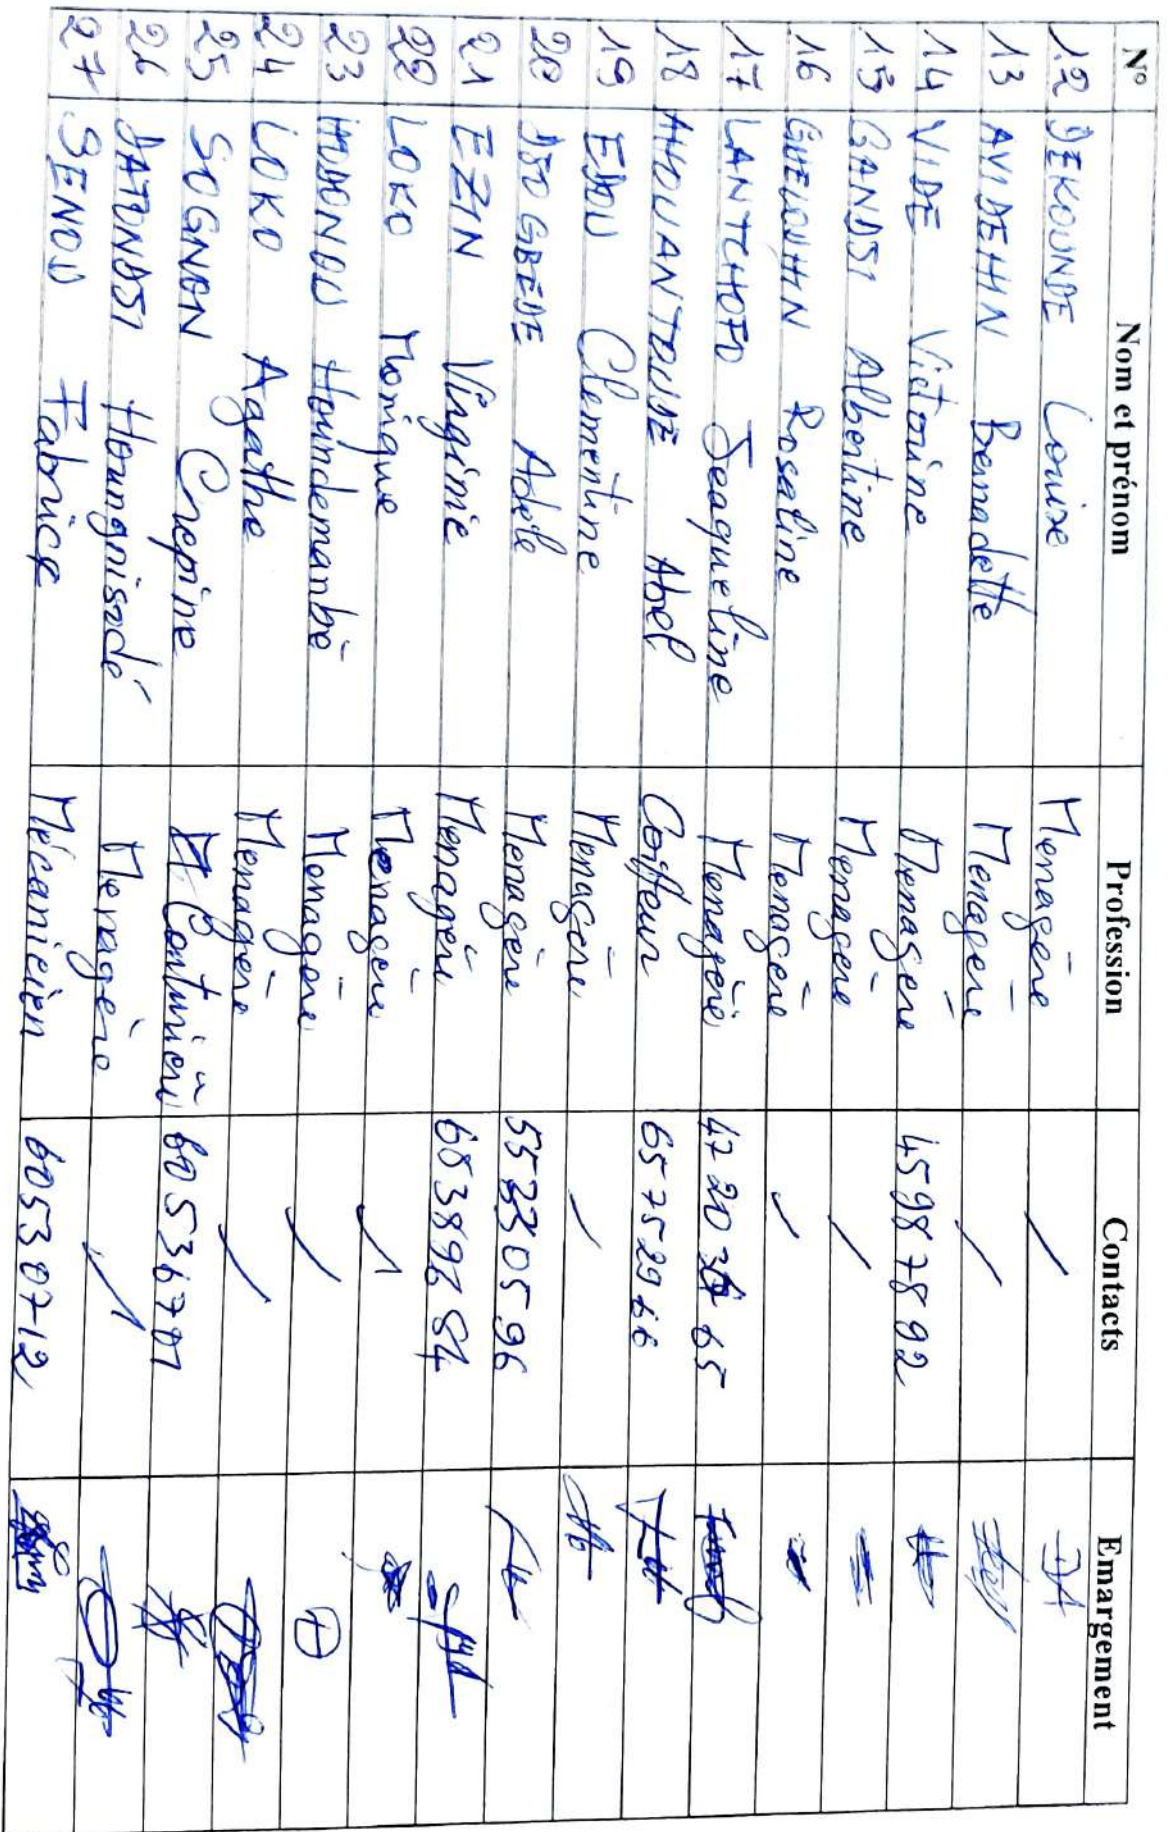 N° Nom et prénom Profession Contacts Emargement
12 DEKOUNDE Louise Menagère /
13 AVIDEHIN Bernadette Menagère /
14 VIDE Victorine Menagère 45987892
15 GANDSI Albertine Menagère /
16 Rosaline Menagère /
17 LANTCHOFO Jeaqueline Menagère 65
18 AHOUANTOUDE Abel Coiffeur 65752966
19 EDOU Clementine Menagère /
20 Adèle Menagère
21 EZIN Virginie Menagère
22 LOKO Monique Menagère /
23 HODONOU Houindemambè Menagère /
24 LOKO Agathe Menagère /
25 SOGNON Crepine Couturière 60536701
26 DATONDSI Houngnisodé Menagère /
27 SENOU Fabrice Mécanicien 60530712